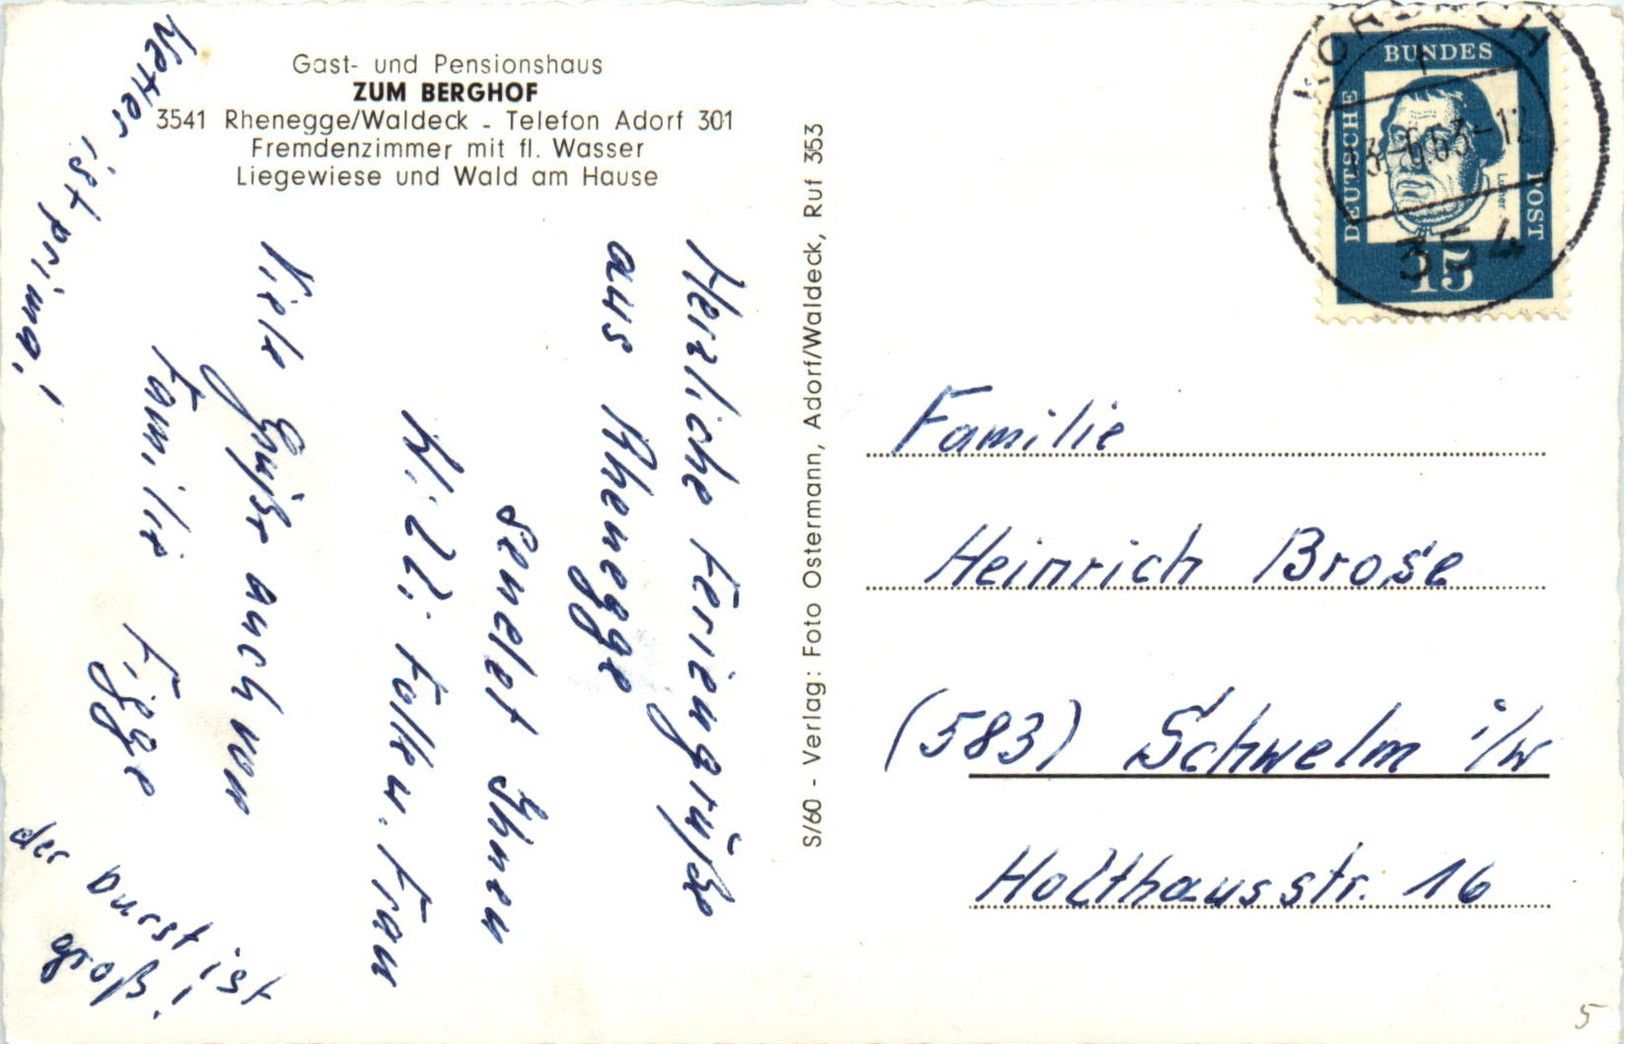 Gast- und Pensionshaus
ZUM BERGHOF
3541 Rhenegge/Waldeck - Telefon Adorf 301
Fremdenzimmer mit fl. Wasser
Liegewiese und Wald am Hause
Herzliche Feriengrüße
aus Rhenegge
sendet Ihnen
Frau
Viele Grüße auch von
Familie Figge
Wetter ist prima!
der Durst ist
groß!
S/60 - Verlag: Foto Ostermann, Adorf/Waldeck, Ruf 353
DEUTSCHE
BUNDES
POST
Luther
15
354
Familie
Heinrich Brose
(583) Schwelm i/W
Holthausstr. 16
5